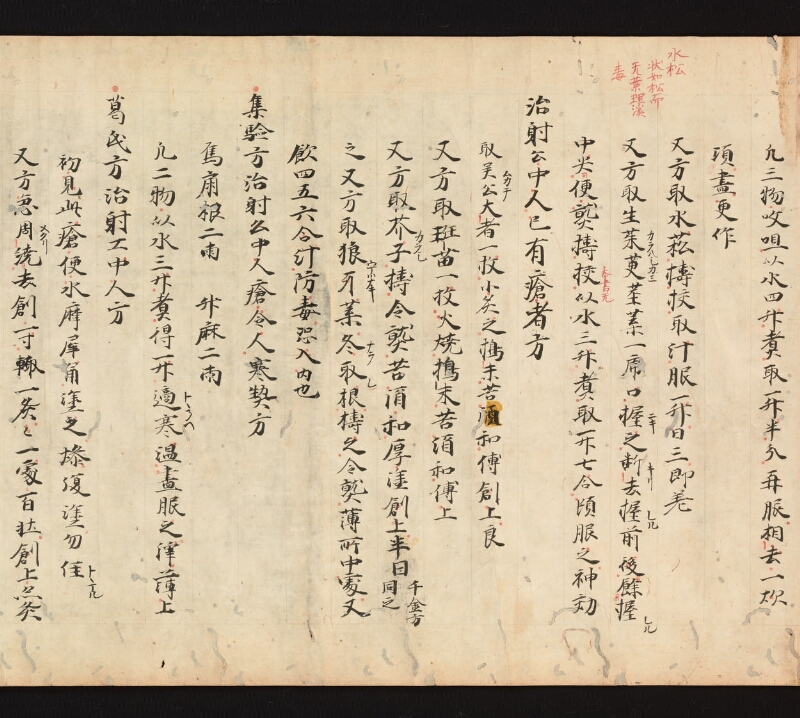 水松
状如松而
无葉理溪
毒
凡三物㕮咀以水四升煮取一升半分再服相去一炊
頃盡更作
又方取水菘擣挍取汁服一升日三即差
又方取生茱萸莖葉一虎口握之断去握前後餘握
中尖便熟擣挍以水三升煮取一升七合頃服之神効
治射公中人已有瘡者方
取吴公大者一枚小炙之擣末苦酒和傅創上良
又方取班苗一枚火燒擣末苦酒和傅上
又方取芥子擣令熟苦酒和厚塗創上半日千金方同之
之又方取狼牙葉冬取根擣之令熟薄所中處又
飲四五六合汁防毒恐入内也
集驗方治射公中人瘡令人寒熱方
馬扇根二兩 升麻二兩
凡二物以水三升煮得一升適寒温盡服之滓薄上
葛氏方治射工中人方
初見此瘡便水摩犀角塗之燥復塗勿住
又方急周繞去創一寸輙一灸々一處百壮創上亦灸